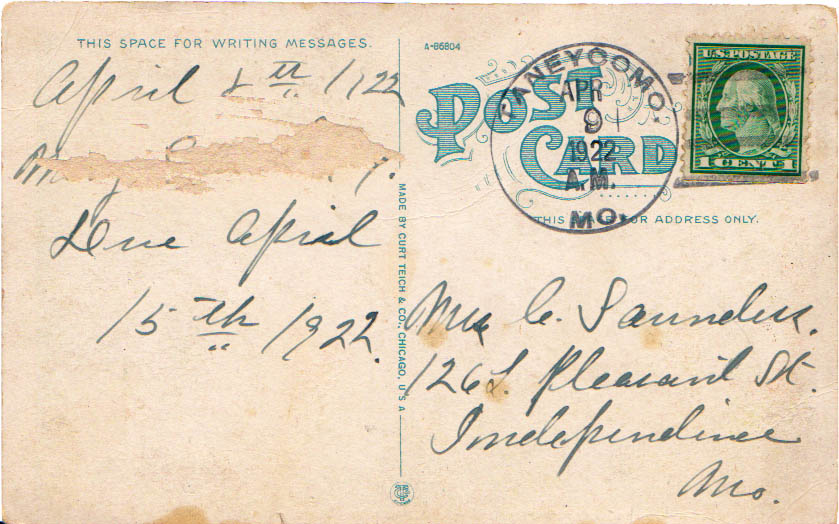 THIS SPACE FOR WRITING MESSAGES.
April 8th 1922
Due April
15th 1922.
MADE BY CURT TEICH & CO., CHICAGO, U S A
A-86804
POST CARD
TANEYCOMO.
APR
9
1922
A.M.
MO.
U.S. POSTAGE
1 CENT 1
THIS SPACE FOR ADDRESS ONLY.
Mrs C. Saunders.
Pleasant St.
Independence
Mo.